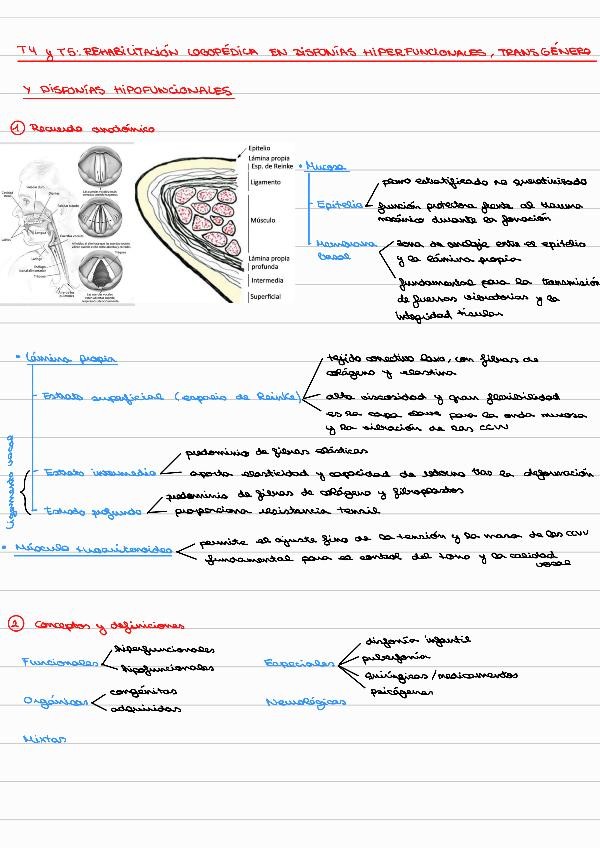 T4 y T5: REHABILITACIÓN LOGOPÉDICA EN DISFONÍAS HIPERFUNCIONALES, TRANSGÉNERO
Y DISFONÍAS HIPOFUNCIONALES
1 Recuerdo anatómico
Epitelio
Lámina propia
Esp. de Reinke
Ligamento
Músculo
Lámina propia
profunda
Intermedia
Superficial
• Mucosa
Epitelio
plano estratificado no queratinizado
función protectora frente al trauma
mecánico durante la fonación
Membrana
basal
zona de anclaje entre el epitelio
y la lámina propia
fundamental para la transmisión
de fuerzas vibratorias y la
integridad tisular
• Lámina propia
Estrato superficial (espacio de Reinke)
tejido conectivo laxo, con fibras de
colágeno y elastina
alta viscosidad y gran flexibilidad
es la capa clave para la onda mucosa
y la vibración de las CCVV
Ligamento vocal
Estrato intermedio
predominio de fibras elásticas
aporta elasticidad y capacidad de retorno tras la deformación
Estrato profundo
predominio de fibras de colágeno y fibroblastos
proporciona resistencia tensil
• Músculo tiroaritenoideo
permite el ajuste fino de la tensión y la masa de las CCVV
fundamental para el control del tono y la calidad
vocal
2 Conceptos y definiciones
Funcionales
hiperfuncionales
hipofuncionales
Orgánicas
congénitas
adquiridas
Mixtas
Especiales
disfonía infantil
puberfonía
quirúrgicas/medicamentos
psicógenas
Neurológicas